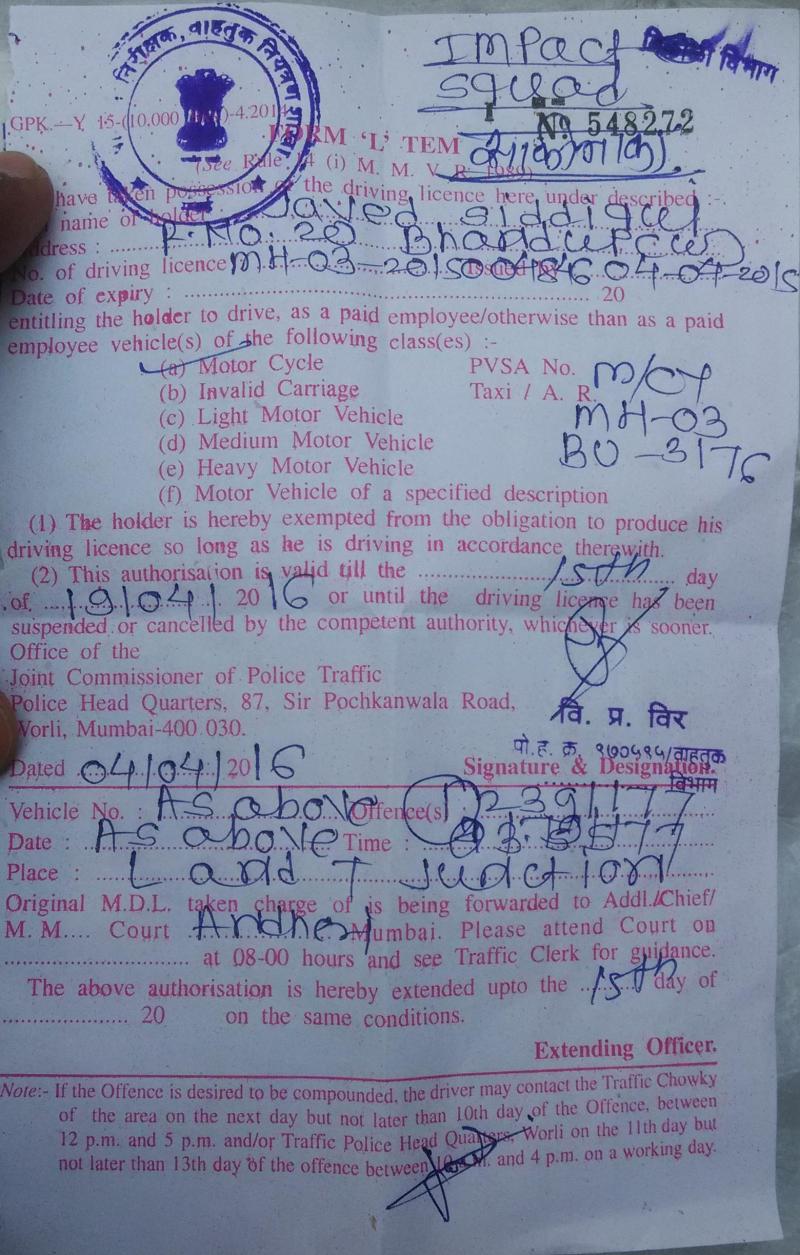 निरीक्षक, वाहतूक नियंत्रण शाखा
IMPact
विभाग
Squad
GPK.—Y 15-(10,000 )-4.2014
I
No 548272
FORM 'L' TEM
(See Rule (i) M. M. V. R. 1989)
have taken possession of the driving licence here under described :-
name of holder Javed Siddiqui
Address : R.No. 20 Bhandup (W)
No. of driving licence MH-03-20150048460 4-04-2015
Date of expiry : 20
entitling the holder to drive, as a paid employee/otherwise than as a paid
employee vehicle(s) of the following class(es) :-
(a) Motor Cycle PVSA No. M/CY
(b) Invalid Carriage Taxi / A. R.
(c) Light Motor Vehicle MH-03
(d) Medium Motor Vehicle BU-3176
(e) Heavy Motor Vehicle
(f) Motor Vehicle of a specified description
(1) The holder is hereby exempted from the obligation to produce his
driving licence so long as he is driving in accordance therewith.
(2) This authorisation is valid till the 15th day
of 19/04/ 2016 or until the driving licence has been
suspended or cancelled by the competent authority, whichever is sooner.
Office of the
Joint Commissioner of Police Traffic
Police Head Quarters, 87, Sir Pochkanwala Road,
Worli, Mumbai-400 030.
वि. प्र. विर
पो.ह. क्र. १७०५९५/वाहतुक
विभाग
Dated 04/04/2016 Signature & Designation.
Vehicle No. : As above Offence(s) (1) 239/177
Date : As above Time :
Place : L and T Junction
Original M.D.L. taken charge of is being forwarded to Addl./Chief/
M. M.... Court Andheri Mumbai. Please attend Court on
at 08-00 hours and see Traffic Clerk for guidance.
The above authorisation is hereby extended upto the 15th day of
20 on the same conditions.
Extending Officer.
Note:- If the Offence is desired to be compounded, the driver may contact the Traffic Chowky
of the area on the next day but not later than 10th day of the Offence, between
12 p.m. and 5 p.m. and/or Traffic Police Head Quarters, Worli on the 11th day but
not later than 13th day of the offence between 10 a.m. and 4 p.m. on a working day.